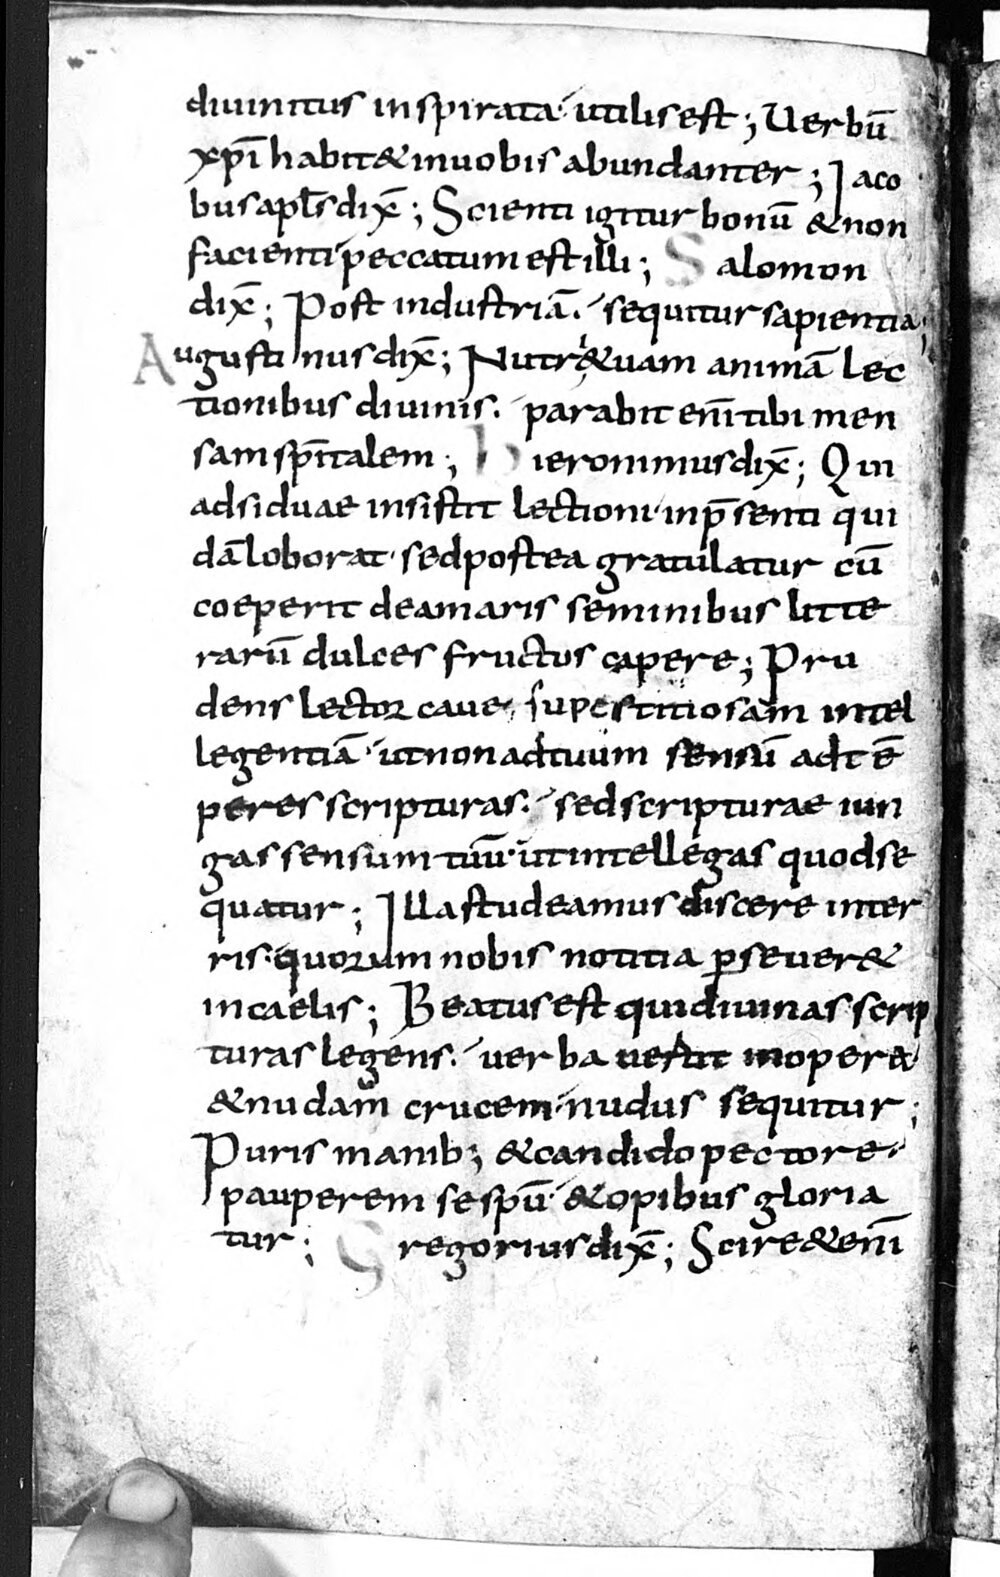 diuinitus inspirata· utilis est; Uerbū
xp̄i habit& inuobis abundanter; Iaco
bus apl̄s dix̄; Scienti igitur bonū & non
facienti peccatum est illi; Salomon
dix̄; Post industriā. sequitur sapientia;
Augustinus dix̄; Nutri& uam animā lec
tionibus diuinis. parabit enī tibi men
sam sp̄italem; hieronimus dix̄; Qui
adsiduae insistit lectioni· inp̄senti qui
dā loborat· sed postea gratulatur cū
coeperit deamaris seminibus litte
rarū dulces fructus capere; Pru
dens lector caue superstitiosam intel
legentiā· ut non ad tuum sensū adtē
peres scripturas. sed scripturae iun
gas sensum tuū· ut intellegas quod se
quatur; Illa studeamus discere inter
ris· quorum nobis notitia p̱seuer&
in caelis; Beatus est qui diuinas scrip
turas legens. uerba uertit in opera
& nudam crucem· nudus sequitur;
Puris manib; & candido pectore
pauperem se spū· & opibus gloria
tur; Gregorius dix̄; Scire& enī